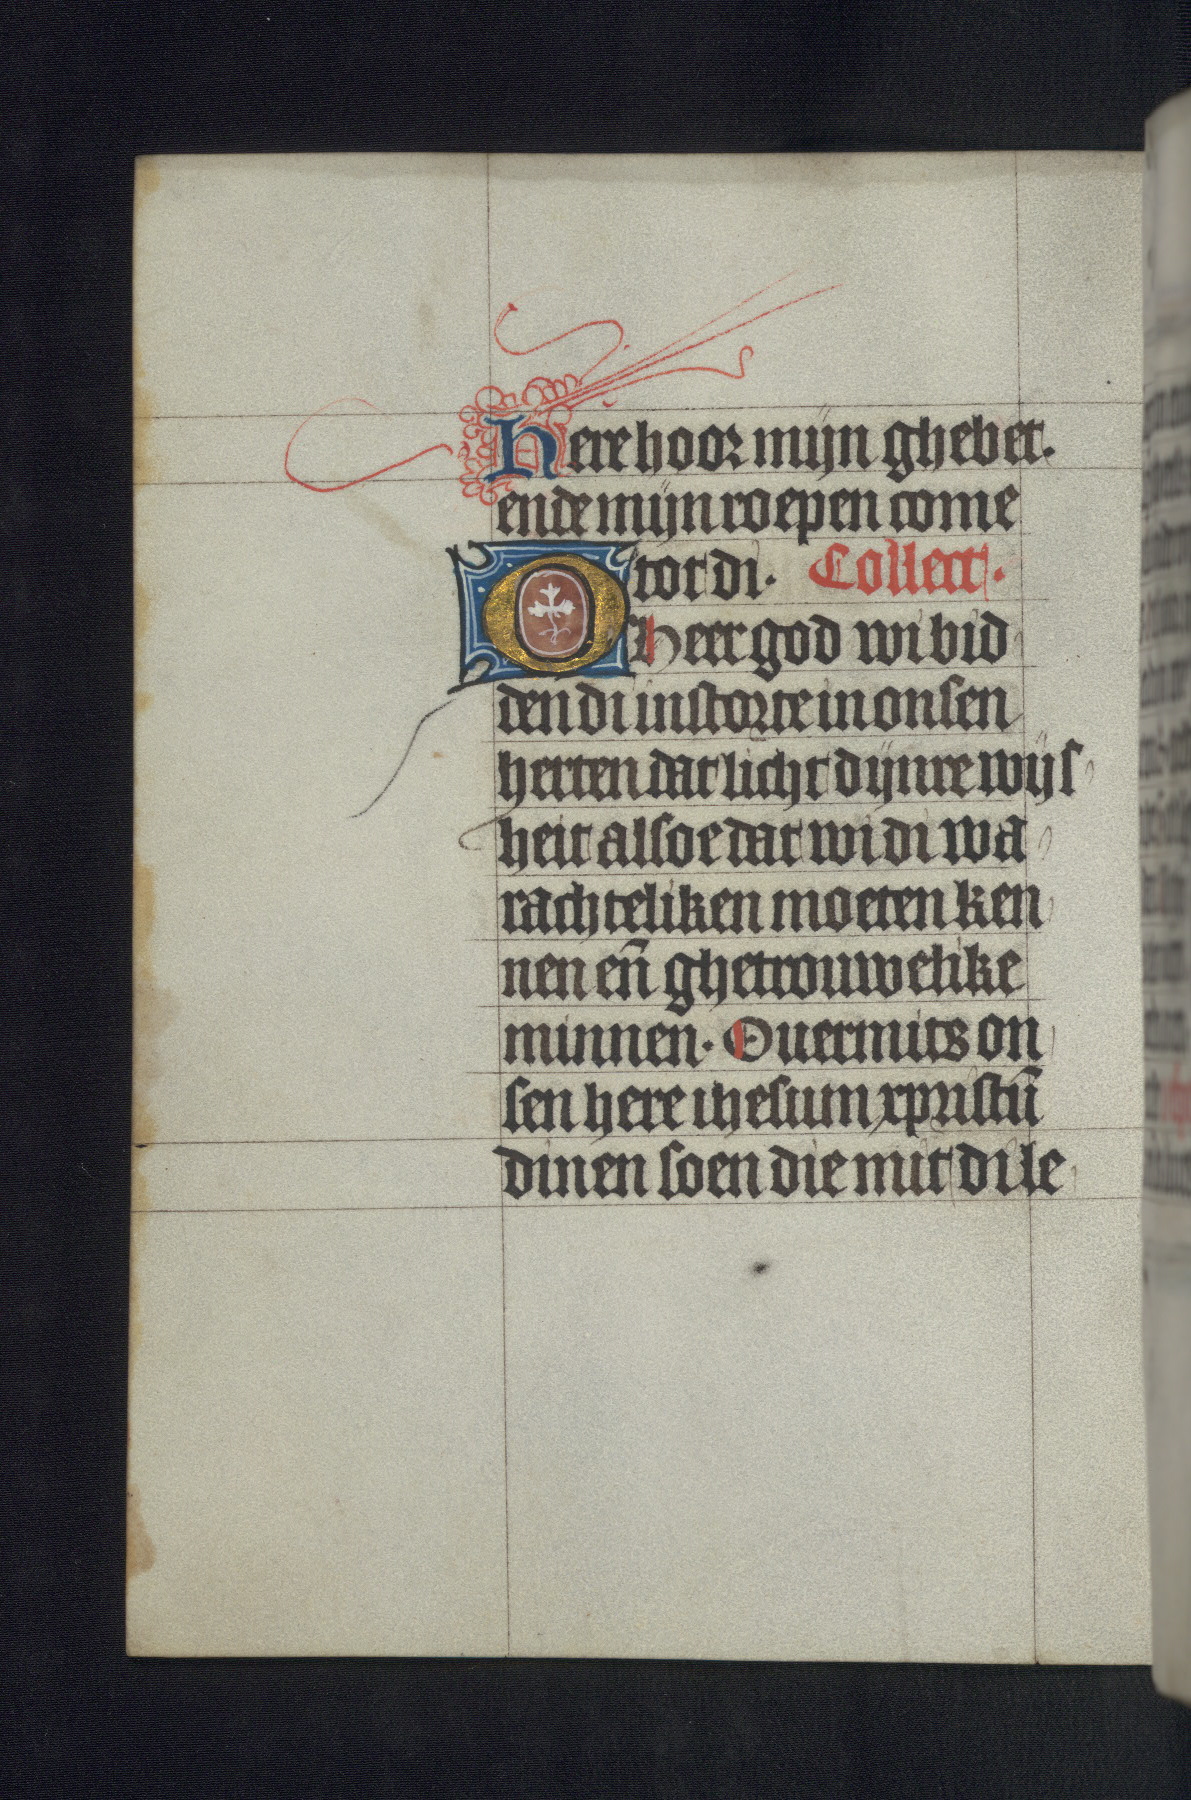 Here hoor mijn ghebet.
ende mijn roepen come
tot di. Collect.
O Heer god wi bid
den di instorte in onsen
herten dat licht dijnre wijs
heit alsoe dat wi di wa
rachteliken moeten ken
nen en̄ ghetrouwelike
minnen. Ouermits on
sen here ihesum xpristū
dinen soen die mit di le